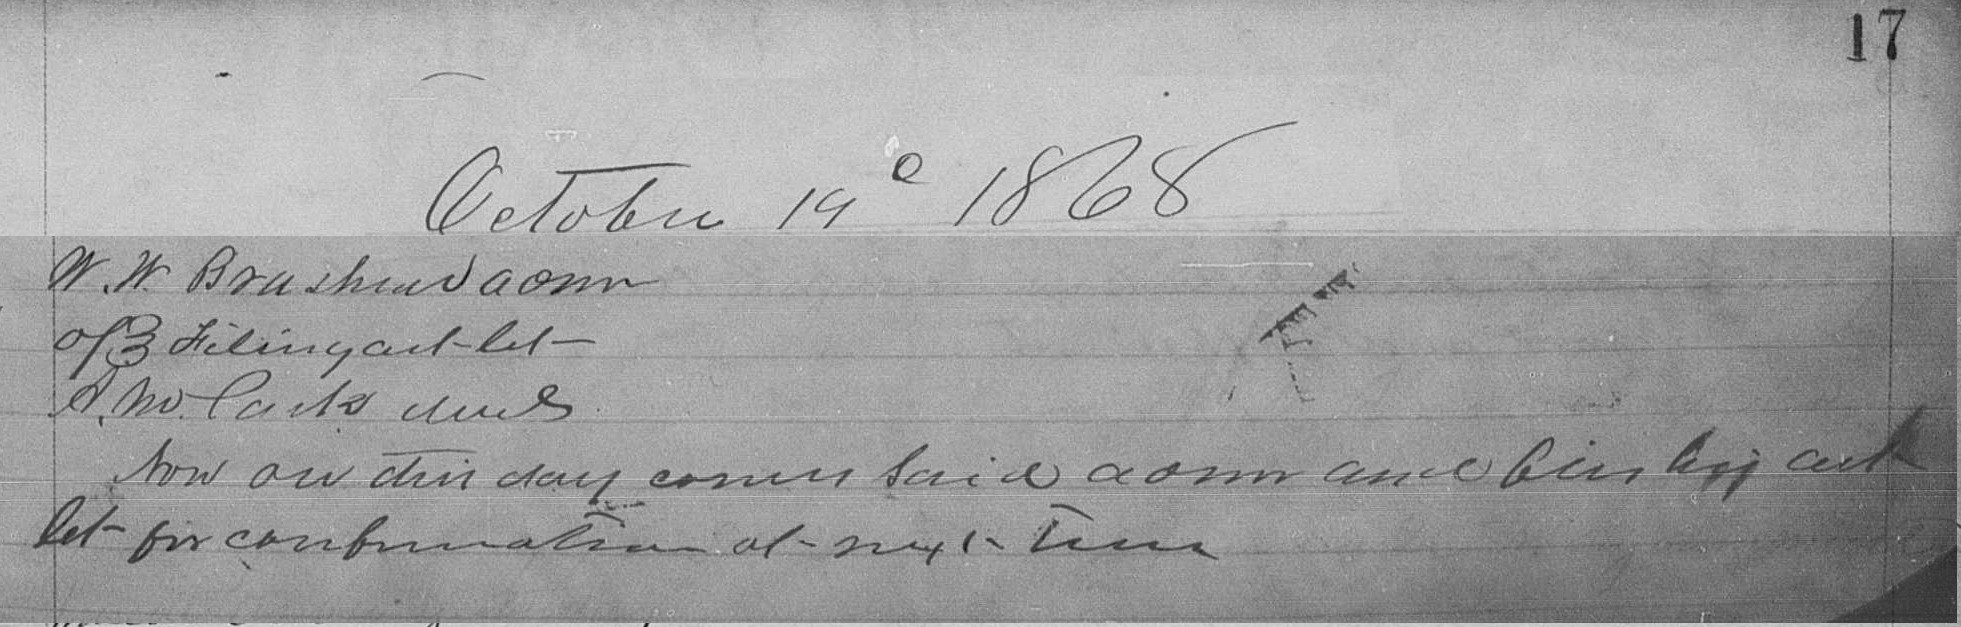 17
October 19 1868
W. W. Brashear admr
of 3 Filing act let
A. M. decd
Now on this day comes said admr and files his act
let for confirmation at next Term